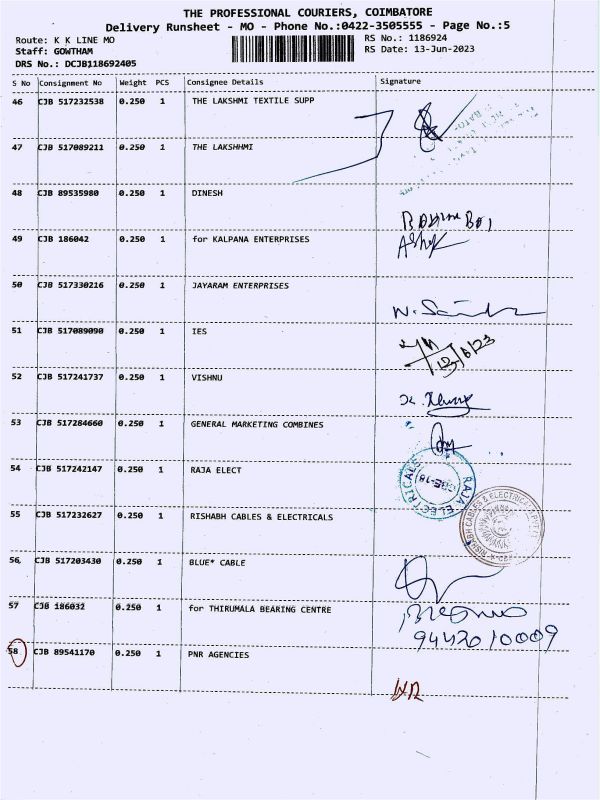 THE PROFESSIONAL COURIERS, COIMBATORE
Delivery Runsheet - MO - Phone No.:0422-3505555 - Page No.:5
Route: K K LINE MO
RS No.: 1186924
Staff: GOWTHAM
RS Date: 13-Jun-2023
DRS No.: DCJB118692405
S No Consignment No Weight PCS Consignee Details Signature
46 CJB 517232538 0.250 1 THE LAKSHMI TEXTILE SUPP
47 CJB 517089211 0.250 1 THE LAKSHHMI
48 CJB 89535980 0.250 1 DINESH
49 CJB 186042 0.250 1 for KALPANA ENTERPRISES
50 CJB 517330216 0.250 1 JAYARAM ENTERPRISES
51 CJB 517089090 0.250 1 IES
13/6/23
52 CJB 517241737 0.250 1 VISHNU
53 CJB 517284660 0.250 1 GENERAL MARKETING COMBINES
54 CJB 517242147 0.250 1 RAJA ELECT
RAJA ELECTRICALS
55 CJB 517232627 0.250 1 RISHABH CABLES & ELECTRICALS
RISHABH CABLES & ELECTRICAL
56 CJB 517203430 0.250 1 BLUE* CABLE
57 CJB 186032 0.250 1 for THIRUMALA BEARING CENTRE
9442010009
58 CJB 89541170 0.250 1 PNR AGENCIES